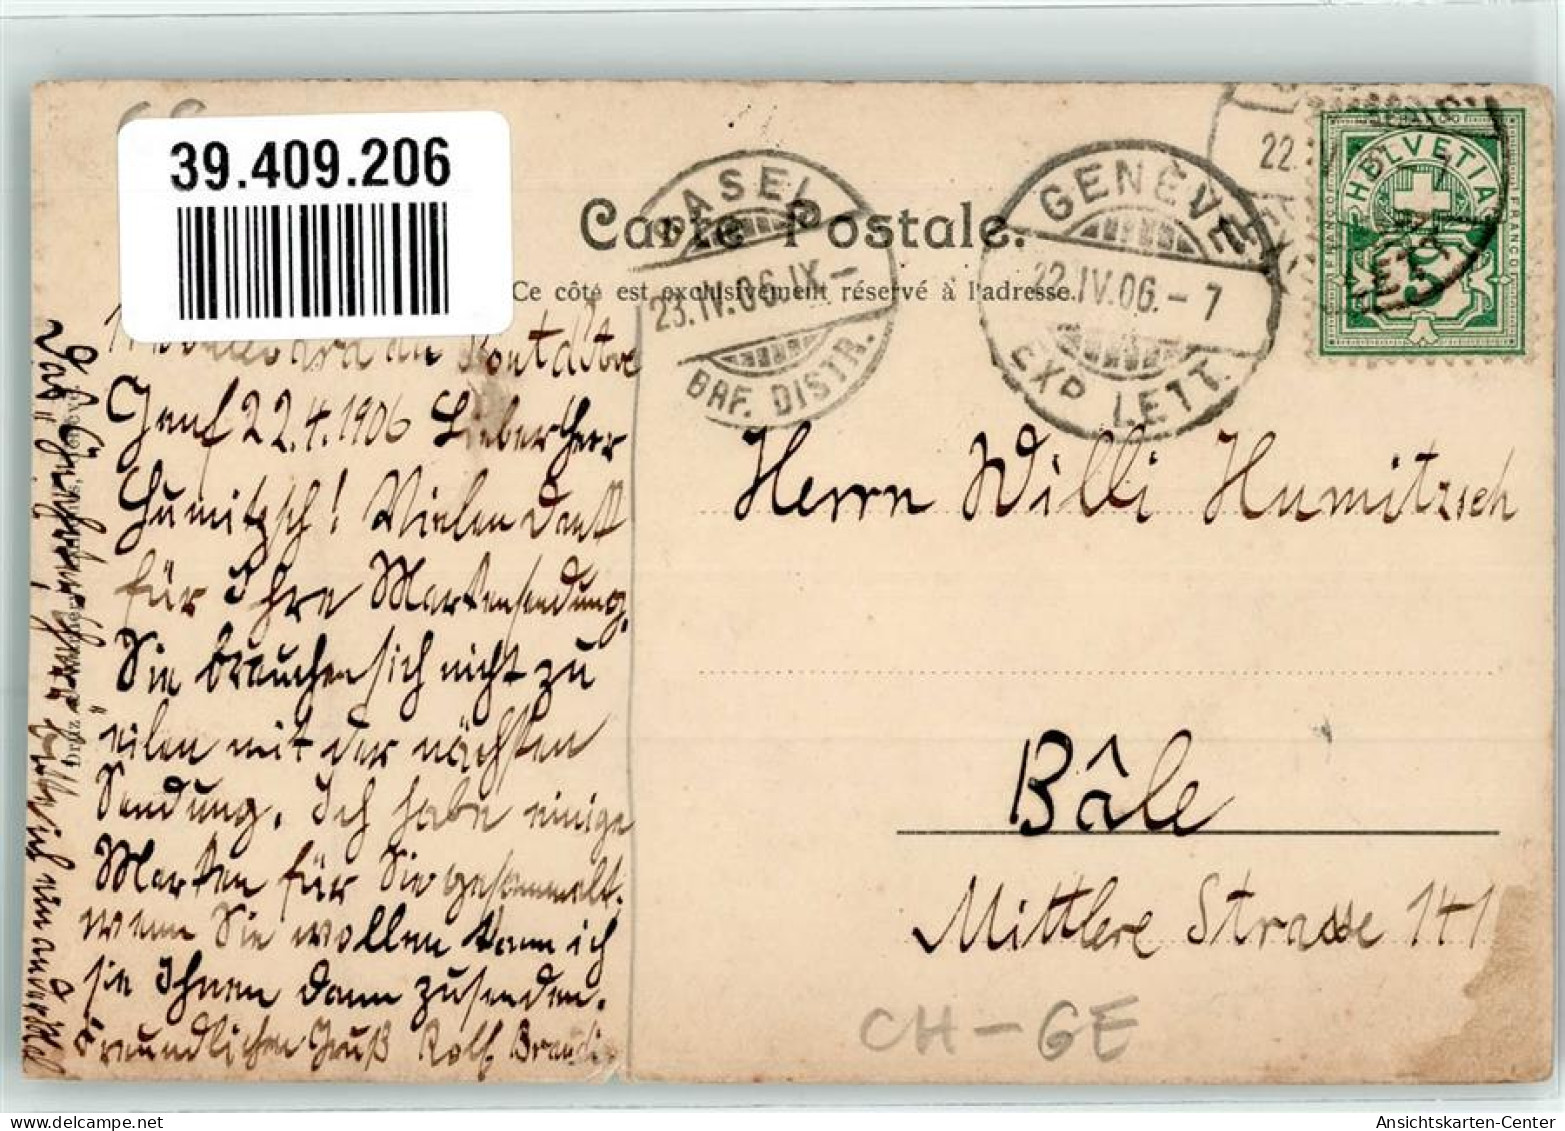 39.409.206
Carte Postale.
Ce côté est exclusivement réservé à l'adresse.
BASEL
23.IV.06.IX-
BRF. DISTR.
GENÈVE
22.IV.06.-7
EXP. LETT.
22.
HELVETIA
FRANCO
FRANCO
5
Boulevard du Pont d'Arve
Genf 22.4.1906 Lieber Herr
Humitzsch! Vielen Dank
für Ihre Markensendung.
Sie brauchen sich nicht zu
eilen mit der nächsten
Sendung. Ich habe einige
Marken für Sie gesammelt.
wenn Sie wollen kann ich
sie Ihnen dann zusenden.
Freundlichen Gruß Rolf
Herrn Willi Humitzsch
Bâle
Mittlere Strasse 141
CH-GE
Ansichtskarten-Center